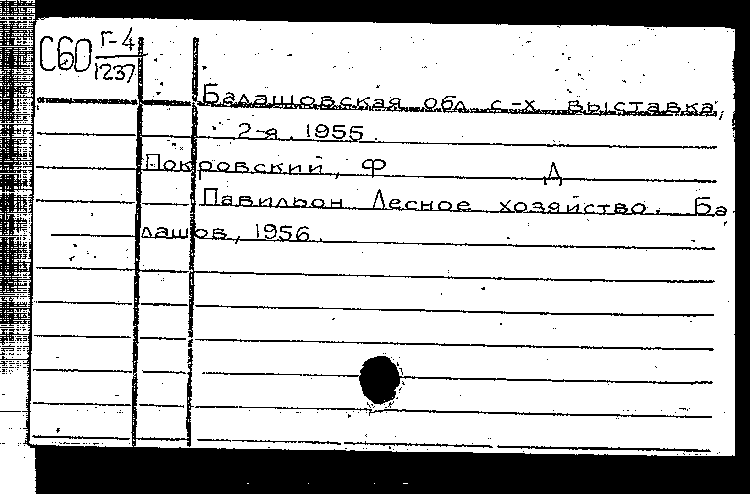 С60 Г-4
1237
Балашовская обл. с-х выставка,
2-я. 1955.
Покровский, Ф Д
Павильон Лесное хозяйство. Ба
лашов, 1956.